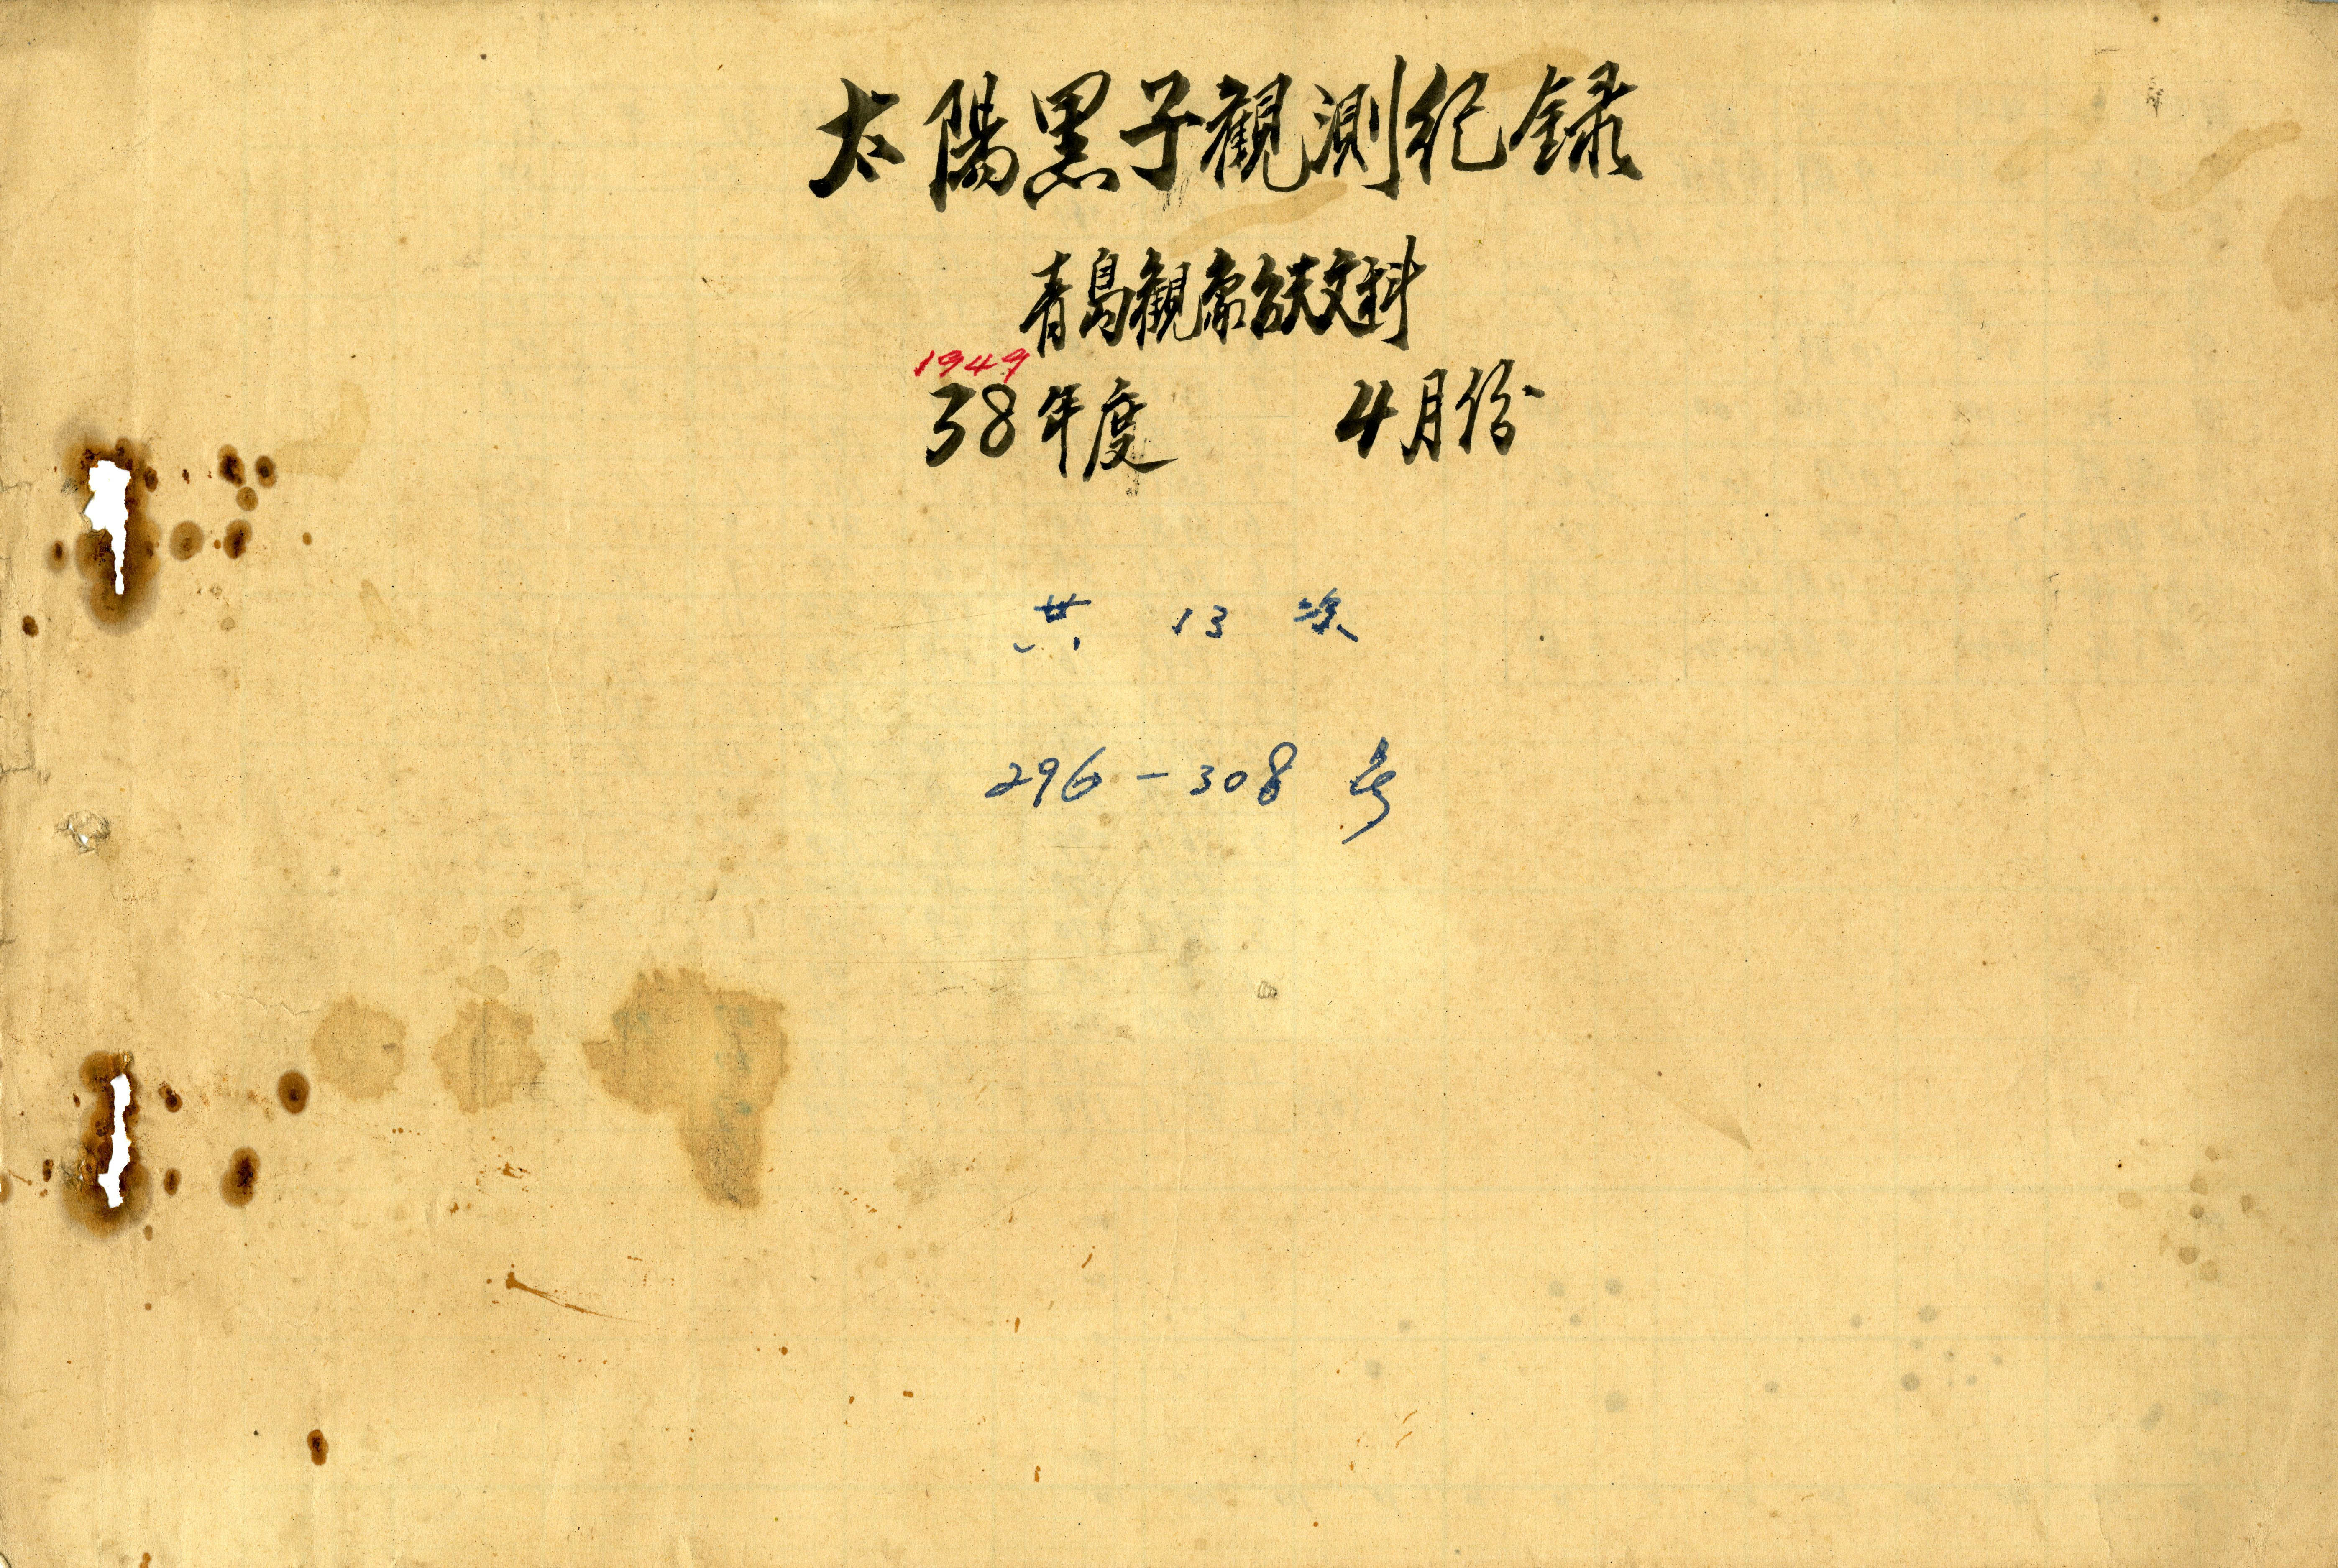 太陽黑子觀測紀録
青島觀象台天文科
1949
38年度 4月份
共 13 次
296-308号